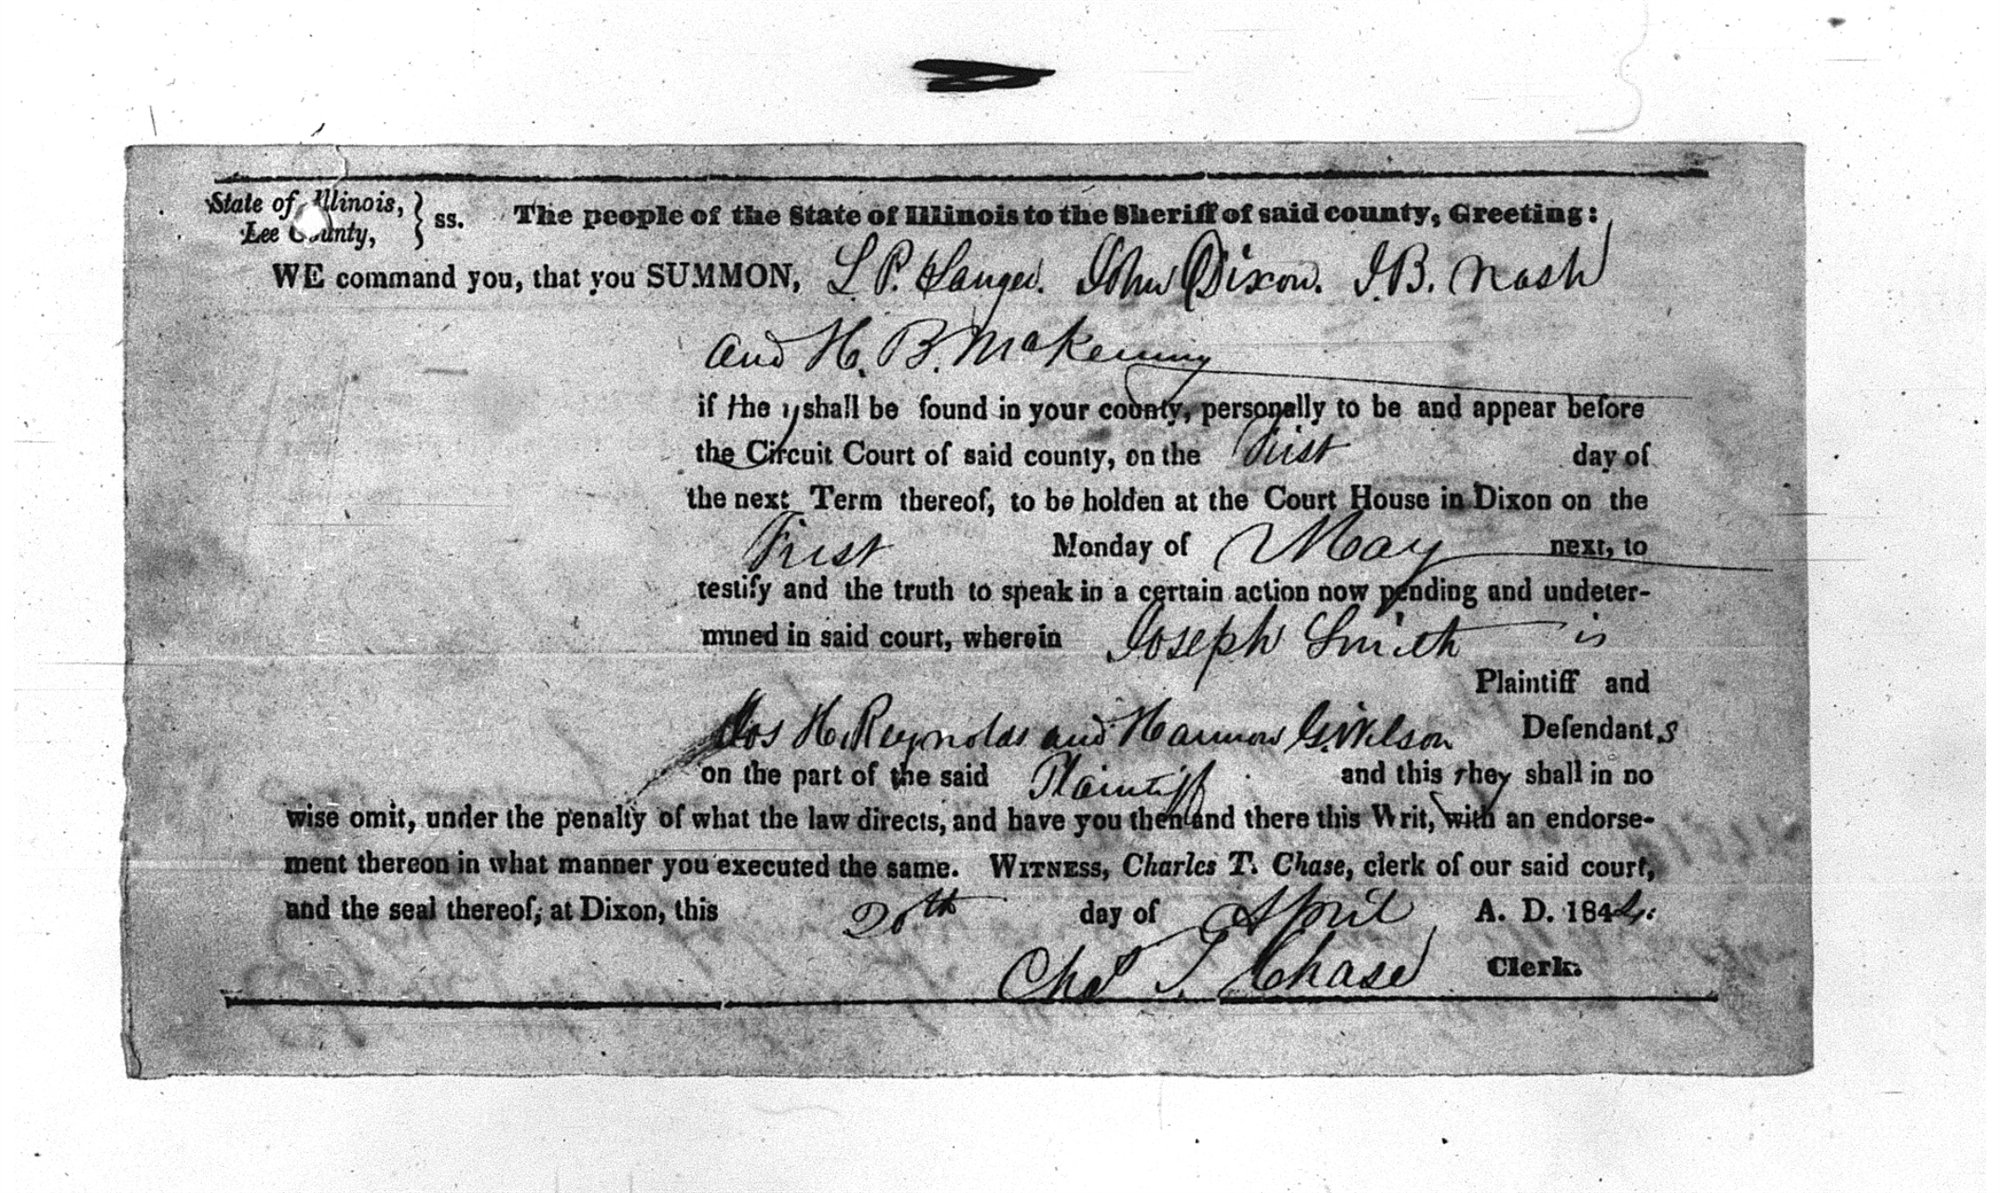 State of Illinois, } ss. The people of the State of Illinois to the Sheriff of said county, Greeting:
Lee County,
WE command you, that you SUMMON, L. P. Sanger. John Dixon. J. B. Nash
and H. B. McKenny
if the y shall be found in your county, personally to be and appear before
the Circuit Court of said county, on the First day of
the next Term thereof, to be holden at the Court House in Dixon on the
First Monday of May next, to
testify and the truth to speak in a certain action now pending and undeter-
mined in said court, wherein Joseph Smith is
Plaintiff and
Jos H. Reynolds and Harmon G. Wilson Defendant s
on the part of the said Plaintiff and this they shall in no
wise omit, under the penalty of what the law directs, and have you then and there this Writ, with an endorse-
ment thereon in what manner you executed the same. WITNESS, Charles T. Chase, clerk of our said court,
and the seal thereof, at Dixon, this 20th day of April A. D. 1844.
Chas T. Chase Clerk.